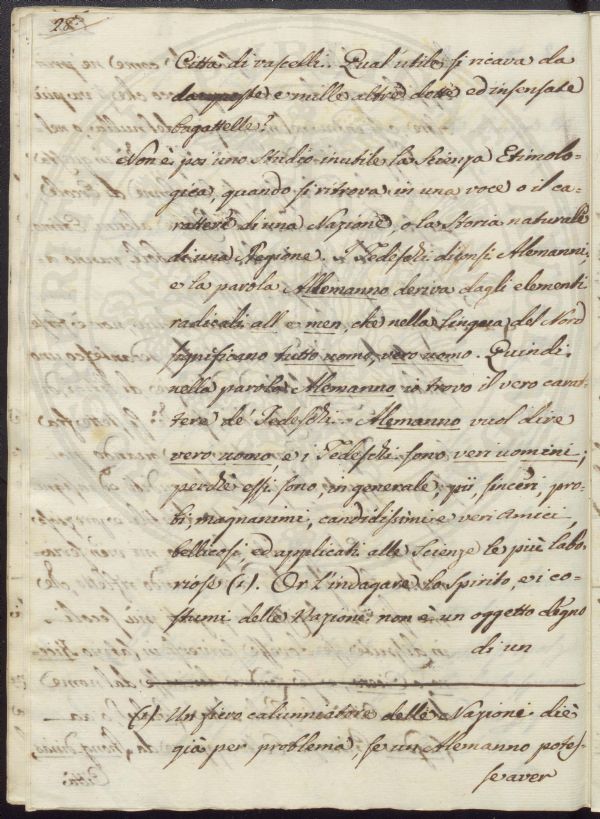 28.
Città di vascelli. Qual utile si ricava da
e mille altre dotte ed insensate
bagattelle?
Non è poi uno studio inutile la Scienza Etimolo-
gica, quando si ritrova in una voce o il ca-
rattere di una Nazione, o la Storia naturale
di una Regione. I Tedeschi diconsi Alemanni,
e la parola Allemanno deriva dagli elementi
radicali all e men, che nella lingua del Nord
significano tutto uomo, vero uomo. Quindi
nella parola Alemanno io trovo il vero carat-
tere de' Tedeschi. Alemanno vuol dire
vero uomo, e i Tedeschi sono veri uomini;
perchè essi sono, in generale, pii, sinceri, pro-
bi, magnanimi, candidissimi e veri Amici,
bellicosi, ed applicati alle Scienze le più labo-
riose (1). Or l'indagare lo spirito, e i co-
stumi delle Nazioni non è un oggetto degno
di un
(1) Un fiero calunniatore delle Nazioni diè
già per problema, se un Alemanno potes-
se aver